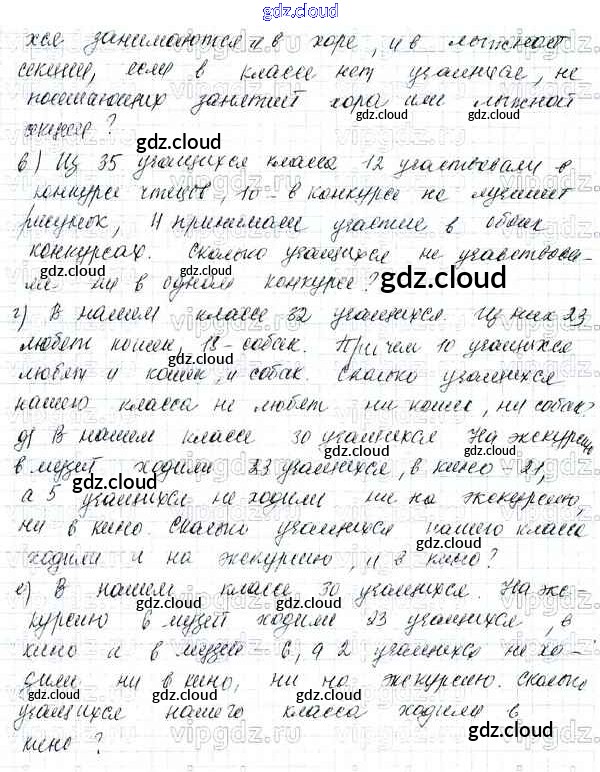 gdz.cloud
хся занимаются и в хоре, и в лыжной
секции, если в классе нет учащихся, не
посещающих занятий хора или лыжной
секции?
в) Из 35 учащихся класса 12 участвовали в
конкурсе чтецов, 10 - в конкурсе на лучший
рисунок, 4 принимали участие в обоих
конкурсах. Сколько учащихся не участвова-
ли ни в одном конкурсе?
г) В нашем классе 32 учащихся. Из них 23
любят кошек, 18 - собак. Причем 10 учащихся
любят и кошек, и собак. Сколько учащихся
нашего класса не любят ни кошек, ни собак?
д) В нашем классе 30 учащихся. На экскурсию
в музей ходили 23 учащихся, в кино - 21,
а 5 учащихся не ходили ни на экскурсию,
ни в кино. Сколько учащихся нашего класса
ходили и на экскурсию, и в кино?
е) В нашем классе 30 учащихся. На экс-
курсию в музей ходили 23 учащихся, в
кино и в музей - 6, а 2 учащихся не хо-
дили ни в кино, ни на экскурсию. Сколько
учащихся нашего класса ходили в
кино?